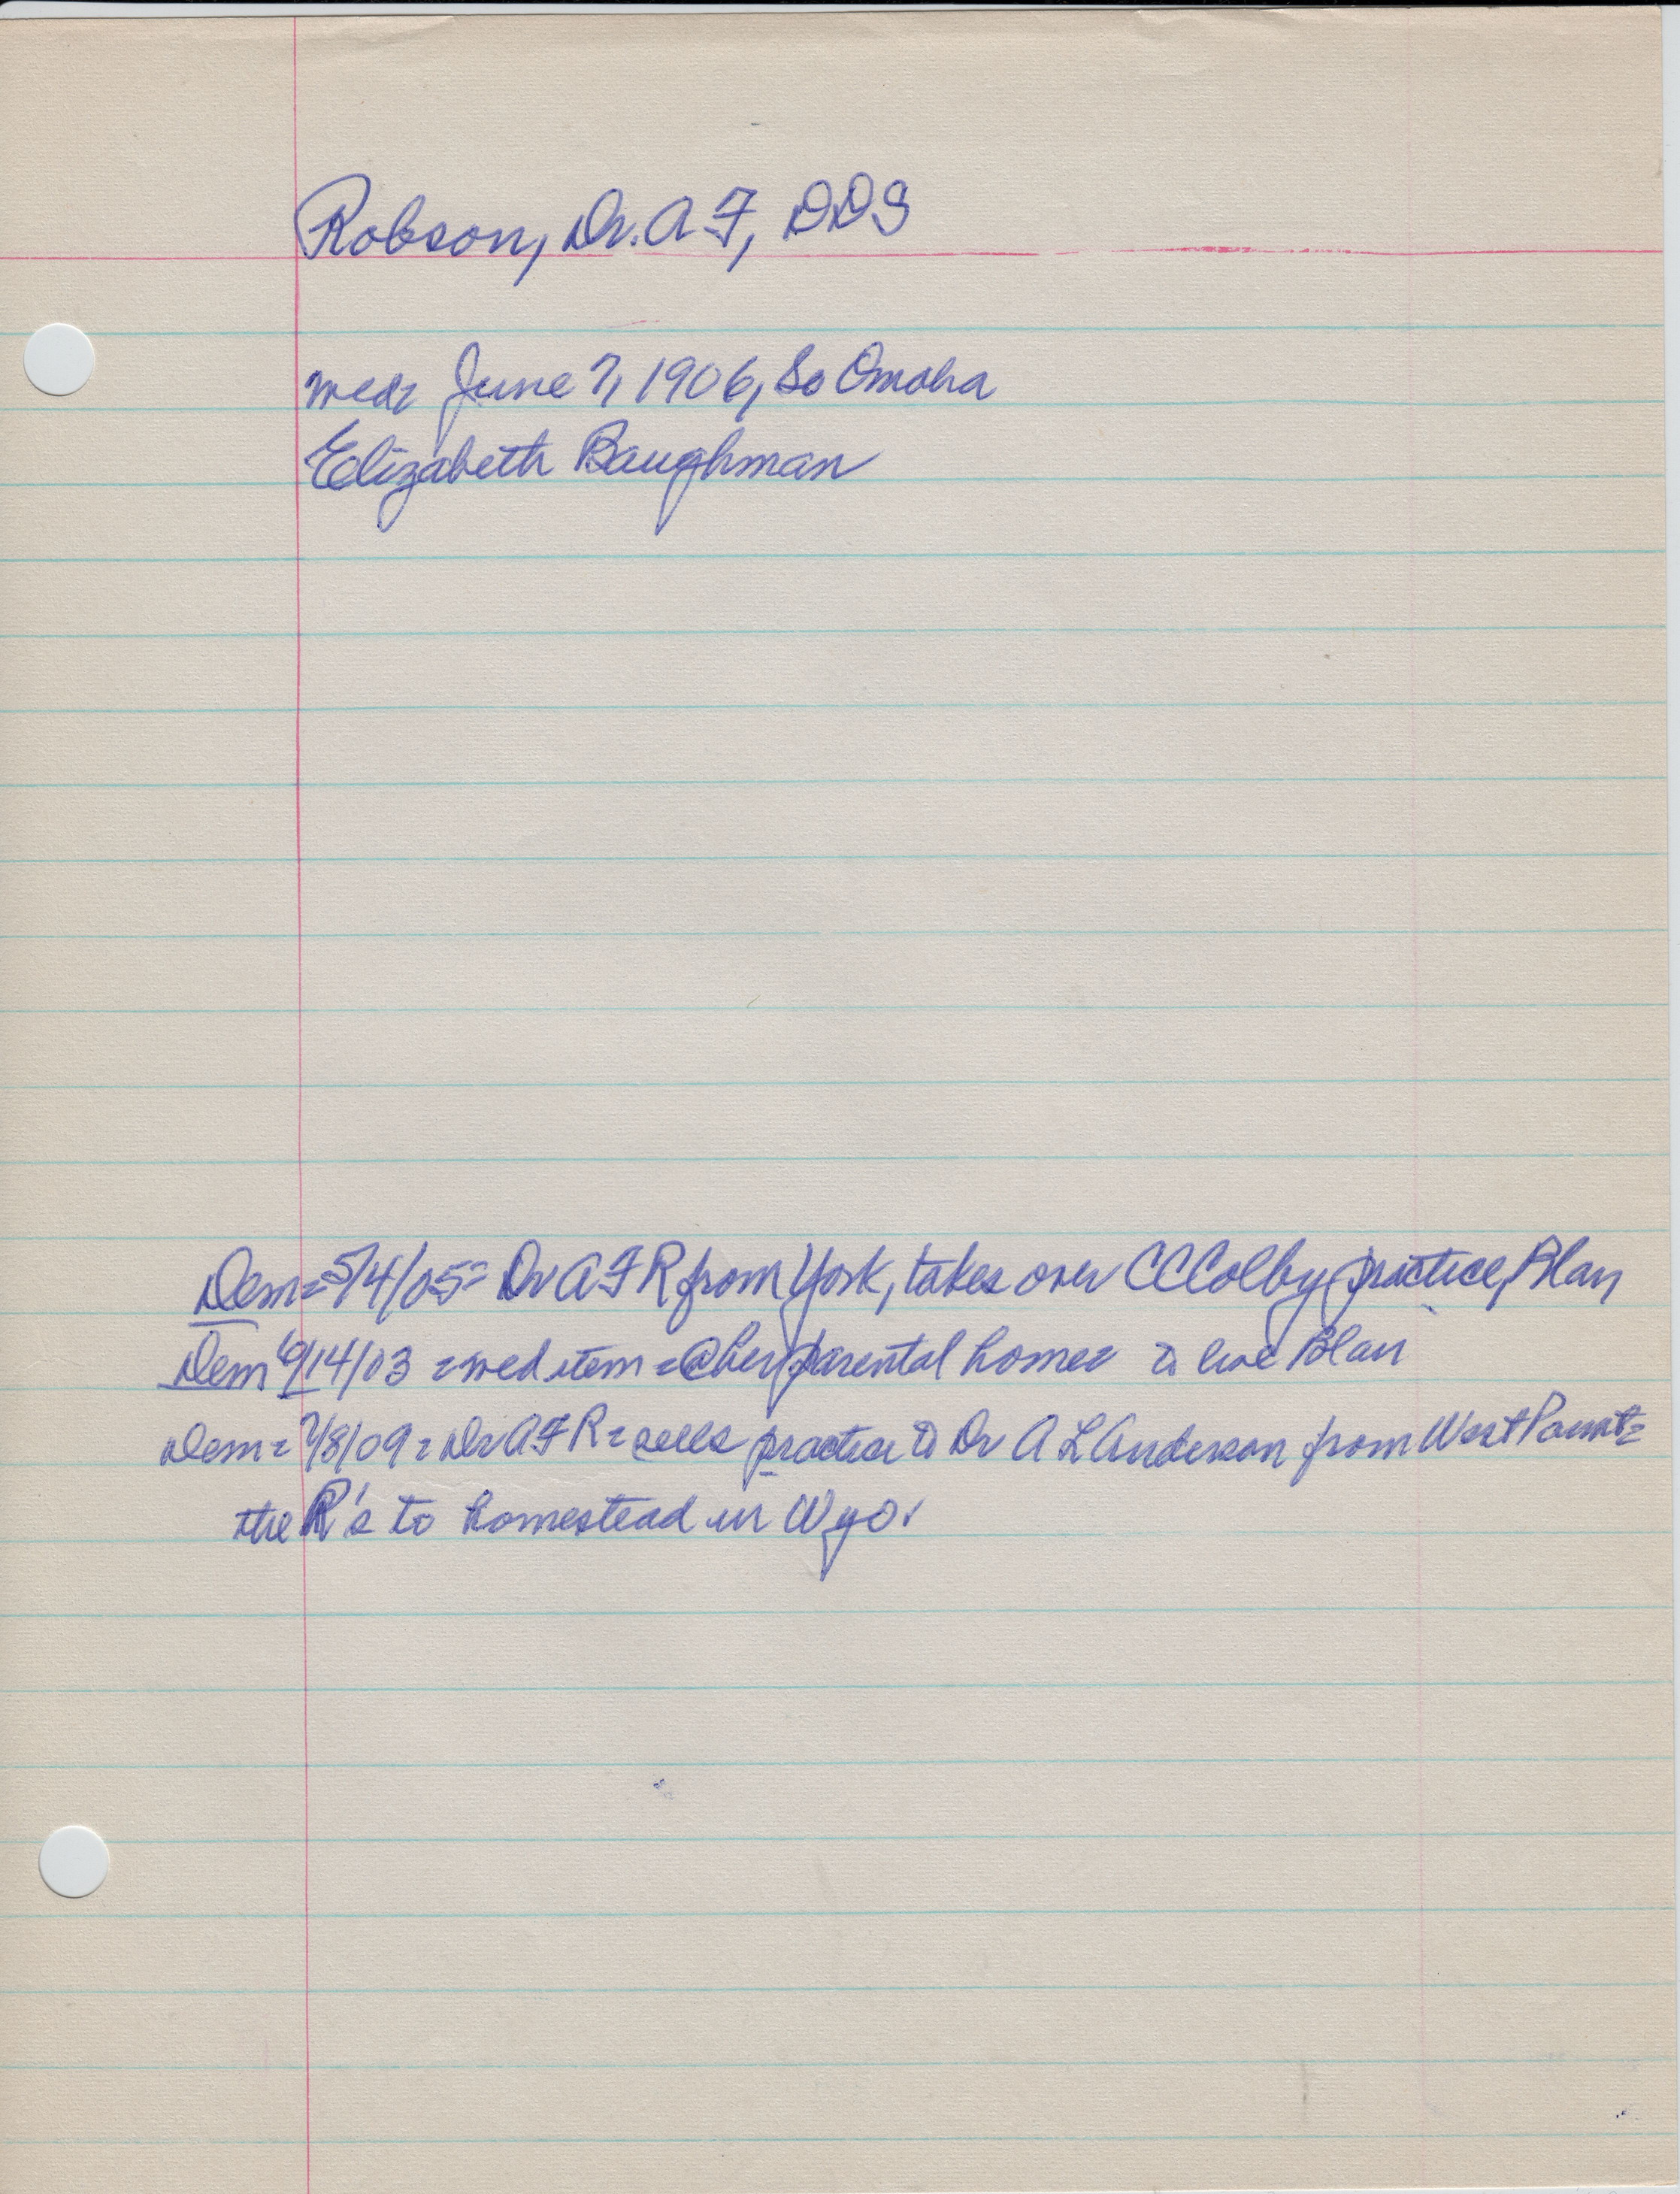 Robson, Dr. A F, DDS
wed= June 7, 1906, So Omaha
Elizabeth Baughman
Dem= 5/4/05= Dr A F R from York, takes over C C Colby practice, Blair
Dem 6/14/03 =wed item =@ her parental home= to live Blair
Dem= 7/8/09= Dr A F R= sells practice to Dr A L Anderson from West Point=
the R's to homestead in Wyo.